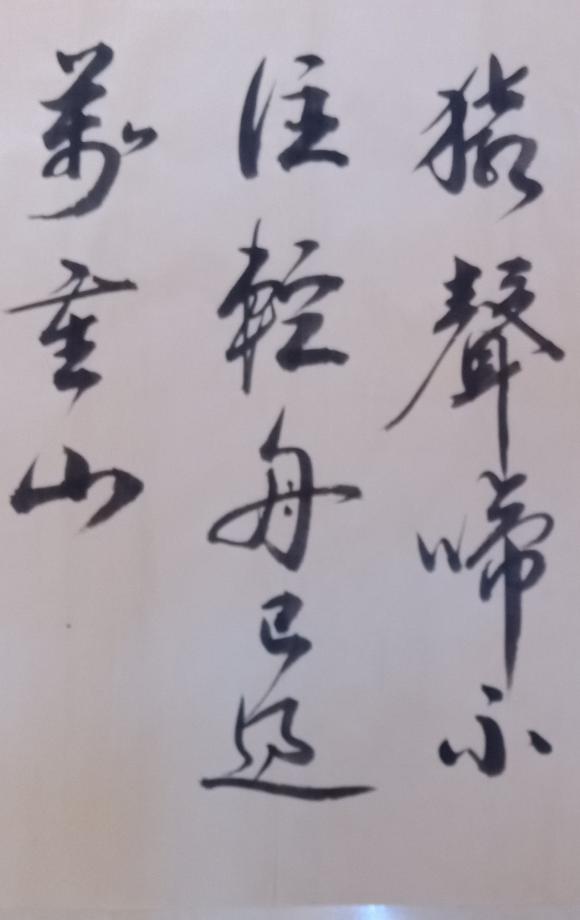 猿聲啼不
住輕舟已過
萬重山